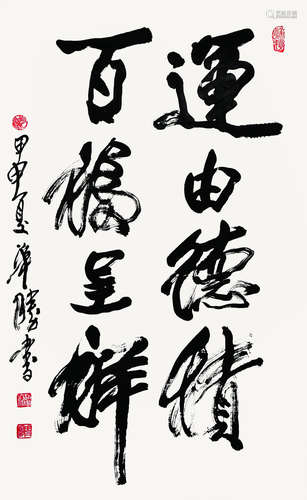 運由德積
百福呈祥
甲申夏 勝書